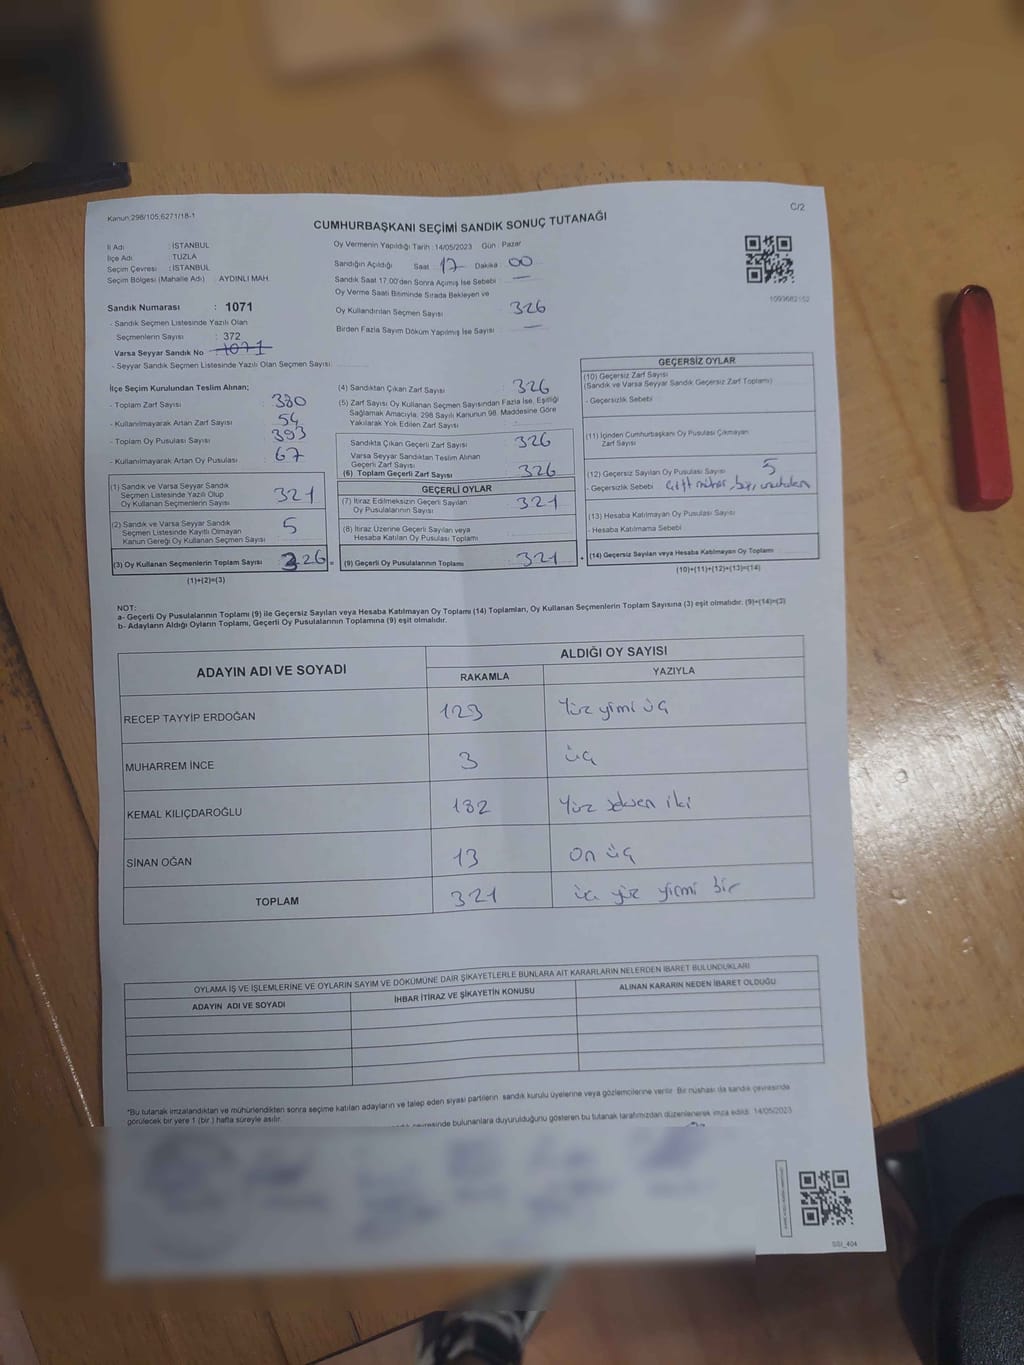 Kanun:298/105,6271/18-1
C/2
CUMHURBAŞKANI SEÇİMİ SANDIK SONUÇ TUTANAĞI
İl Adı : İSTANBUL
İlçe Adı : TUZLA
Seçim Çevresi : İSTANBUL
Seçim Bölgesi (Mahalle Adı) : AYDINLI MAH.
Sandık Numarası : 1071
- Sandık Seçmen Listesinde Yazılı Olan
Seçmenlerin Sayısı : 372
Varsa Seyyar Sandık No 1071
- Seyyar Sandık Seçmen Listesinde Yazılı Olan Seçmen Sayısı:
Oy Vermenin Yapıldığı Tarih : 14/05/2023 Gün : Pazar
Sandığın Açıldığı Saat 17 Dakika : 00
Sandık Saat 17.00'den Sonra Açılmış İse Sebebi : —
Oy Verme Saati Bitiminde Sırada Bekleyen ve
Oy Kullandırılan Seçmen Sayısı : 326
Birden Fazla Sayım Döküm Yapılmış İse Sayısı : —
1093682152
İlçe Seçim Kurulundan Teslim Alınan;
- Toplam Zarf Sayısı : 380
- Kullanılmayarak Artan Zarf Sayısı : 54
- Toplam Oy Pusulası Sayısı : 393
- Kullanılmayarak Artan Oy Pusulası : 67
(1) Sandık ve Varsa Seyyar Sandık
Seçmen Listesinde Yazılı Olup
Oy Kullanan Seçmenlerin Sayısı : 321
(2) Sandık ve Varsa Seyyar Sandık
Seçmen Listesinde Kayıtlı Olmayan
Kanun Gereği Oy Kullanan Seçmen Sayısı : 5
(3) Oy Kullanan Seçmenlerin Toplam Sayısı : 326
(1)+(2)=(3)
(4) Sandıktan Çıkan Zarf Sayısı : 326
(5) Zarf Sayısı Oy Kullanan Seçmen Sayısından Fazla İse, Eşitliği
Sağlamak Amacıyla; 298 Sayılı Kanunun 98. Maddesine Göre
Yakılarak Yok Edilen Zarf Sayısı :
Sandıkta Çıkan Geçerli Zarf Sayısı : 326
Varsa Seyyar Sandıktan Teslim Alınan
Geçerli Zarf Sayısı :
(6) Toplam Geçerli Zarf Sayısı : 326
GEÇERLİ OYLAR
(7) İtiraz Edilmeksizin Geçerli Sayılan
Oy Pusulalarının Sayısı : 321
(8) İtiraz Üzerine Geçerli Sayılan veya
Hesaba Katılan Oy Pusulası Toplamı :
(9) Geçerli Oy Pusulalarının Toplamı : 321
GEÇERSİZ OYLAR
(10) Geçersiz Zarf Sayısı
(Sandık ve Varsa Seyyar Sandık Geçersiz Zarf Toplamı)
- Geçersizlik Sebebi :
(11) İçinden Cumhurbaşkanı Oy Pusulası Çıkmayan
Zarf Sayısı
(12) Geçersiz Sayılan Oy Pusulası Sayısı : 5
- Geçersizlik Sebebi : çift mühür, boş
(13) Hesaba Katılmayan Oy Pusulası Sayısı :
- Hesaba Katılmama Sebebi :
(14) Geçersiz Sayılan veya Hesaba Katılmayan Oy Toplamı :
(10)+(11)+(12)+(13)=(14)
NOT:
a- Geçerli Oy Pusulalarının Toplamı (9) ile Geçersiz Sayılan veya Hesaba Katılmayan Oy Toplamı (14) Toplamları, Oy Kullanan Seçmenlerin Toplam Sayısına (3) eşit olmalıdır. (9)+(14)=(3)
b- Adayların Aldığı Oyların Toplamı, Geçerli Oy Pusulalarının Toplamına (9) eşit olmalıdır.
ADAYIN ADI VE SOYADI ALDIĞI OY SAYISI
RAKAMLA YAZIYLA
RECEP TAYYİP ERDOĞAN 123 Yüz yirmi üç
MUHARREM İNCE 3 üç
KEMAL KILIÇDAROĞLU 182 Yüz seksen iki
SİNAN OĞAN 13 On üç
TOPLAM 321 üç yüz yirmi bir
OYLAMA İŞ VE İŞLEMLERİNE VE OYLARIN SAYIM VE DÖKÜMÜNE DAİR ŞİKAYETLERLE BUNLARA AİT KARARLARIN NELERDEN İBARET BULUNDUKLARI
ADAYIN ADI VE SOYADI İHBAR İTİRAZ VE ŞİKAYETİN KONUSU ALINAN KARARIN NEDEN İBARET OLDUĞU
*Bu tutanak imzalandıktan ve mühürlendikten sonra seçime katılan adayların ve talep eden siyasi partilerin sandık kurulu üyelerine veya gözlemcilerine verilir. Bir nüshası da sandık çevresinde
görülecek bir yere 1 (bir) hafta süreyle asılır.
çevresinde bulunanlara duyurulduğunu gösteren bu tutanak tarafımızdan düzenlenerek imza edildi. 14/05/2023
SSİ_404